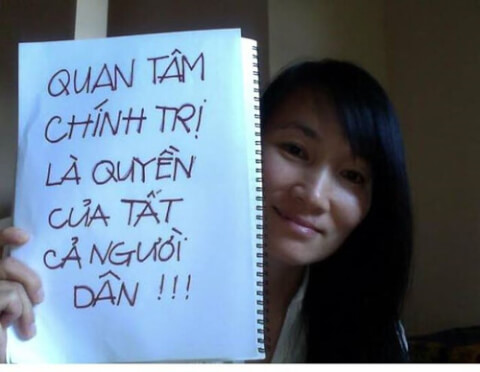 QUAN TÂM
CHÍNH TRỊ
LÀ QUYỀN
CỦA TẤT
CẢ NGƯỜI
DÂN !!!